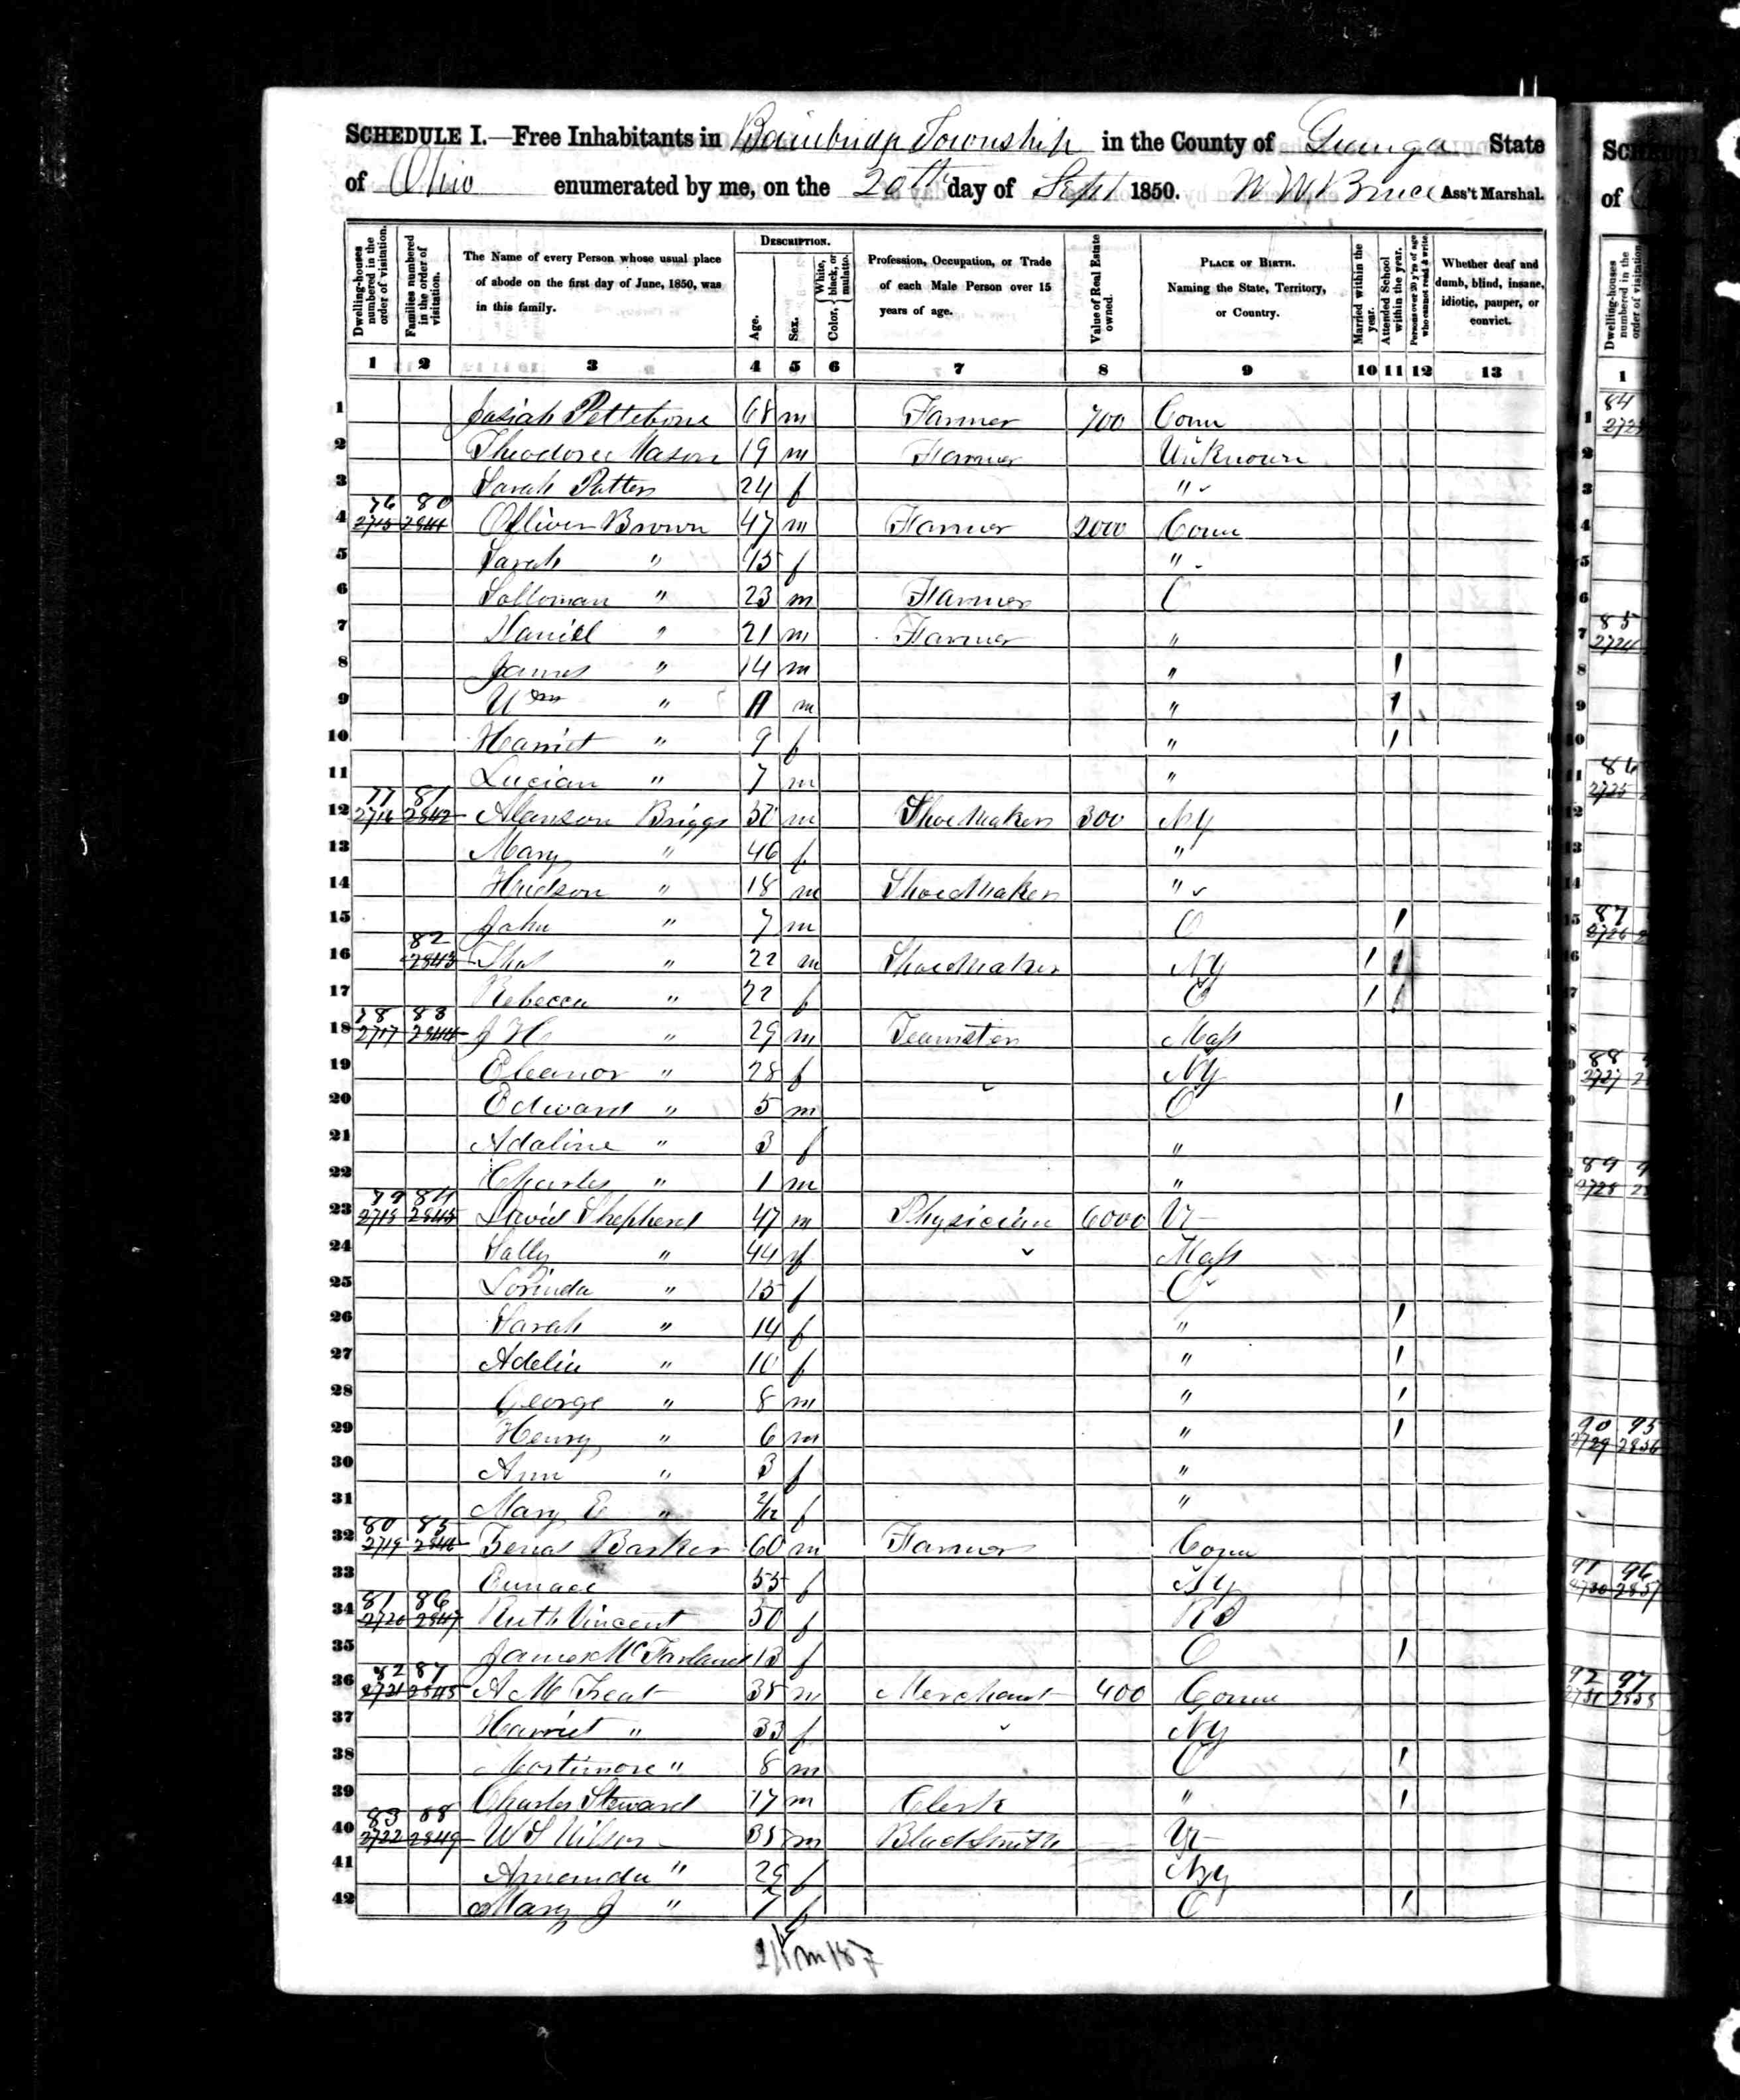 SCHEDULE I.—Free Inhabitants in Bainbridge Township in the County of Geauga State
of Ohio enumerated by me, on the 20th day of Sept 1850. Ass't Marshal.
Dwelling-houses numbered in the order of visitation.
Families numbered in the order of visitation.
The Name of every Person whose usual place of abode on the first day of June, 1850, was in this family.
DESCRIPTION.
Age.
Sex.
Color, { White, black, or mulatto.
Profession, Occupation, or Trade of each Male Person over 15 years of age.
Value of Real Estate owned.
PLACE OF BIRTH. Naming the State, Territory, or Country.
Married within the year.
Attended School within the year.
Persons over 20 y'rs of age who cannot read & write.
Whether deaf and dumb, blind, insane, idiotic, pauper, or convict.
1 2 3 4 5 6 7 8 9 10 11 12 13
1 Josiah Pettebone 68 m Farmer 700 Conn
2 Theodore Mason 19 m Farmer Unknown
3 Sarah 24 f "
76 80
4 2715 2841 Olliver Brown 47 m Farmer 2000 Conn
5 Sarah " f "
6 Solloman " 23 m Farmer O
7 Daniel " 21 m Farmer "
8 James " 14 m " 1
9 Wm " 11 m " 1
10 Harriet " 9 f " 1
11 Lucian " 7 m "
77 81
12 2716 2842 Alanson Briggs m Shoe Maker 300 NY
13 Mary " 46 f "
14 Hudson " 18 m Shoe Maker "
15 John " 7 m O 1
82
16 2843 Thos " 22 m Shoe Maker NY 1 1
17 Rebecca " 22 f O 1 1
78 83
18 2717 2844 J H " 29 m Teamster Mass
19 Eleanor " 28 f NY
20 Edward " 5 m O 1
21 Adaline " 3 f "
22 Charles " 1 m "
79 84
23 2718 2845 David Shepherd 47 m Physician 6000 Vt
24 Sally " 44 f Mass
25 Lorinda " 15 f O
26 Sarah " 14 f " 1
27 Adelia " 10 f " 1
28 George " 8 m " 1
29 Henry " 6 m " 1
30 Ann " 3 f "
31 Mary E " 2/12 f "
80 85
32 2719 2846 Zenas Barker 60 m Farmer Conn
33 Eunace 55 f NY
81 86
34 2720 2847 Ruth Vincent 50 f RI
35 James McFarland 13 f O 1
82 87
36 2721 2848 A M Treat 38 m Merchant 400 Conn
37 Harriet " 33 f NY
38 Mortimore " 8 m O 1
39 Charles Steward 17 m Clerk " 1
83 88
40 2722 2849 W S Wilson 35 m BlackSmith Vt
41 Amanda " 29 f NY
42 Mary J " 7 f O 1
1
84
85
2724
86
2725
87
2726
88
2727
89
2728
90 95
2729 2856
91 96
2730 2857
92 97
2731 2858